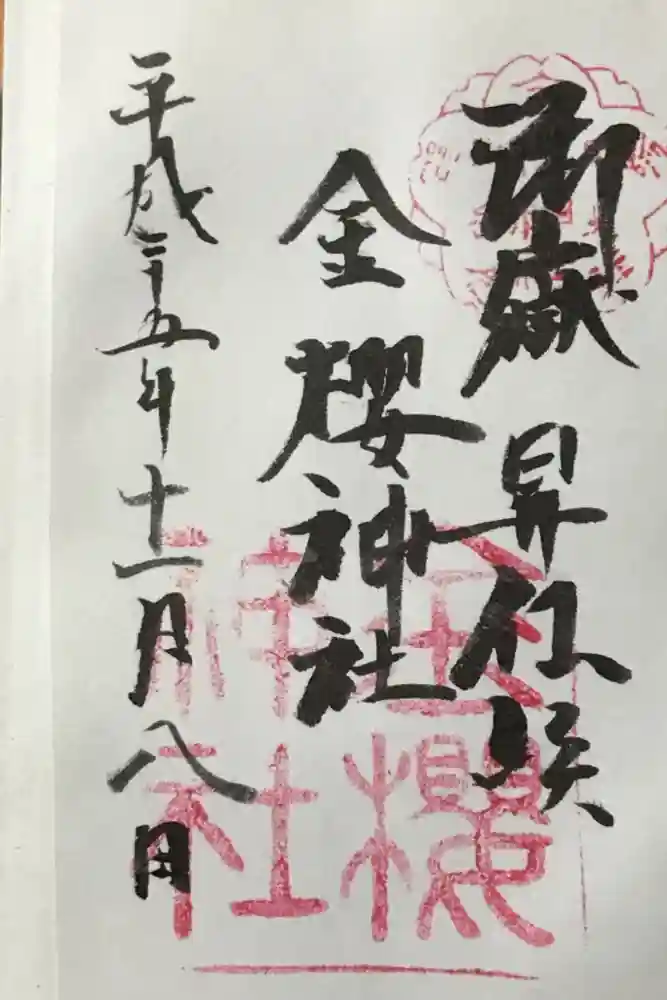 御嶽昇仙峡
金櫻神社
平成二十五年十一月八日
金櫻
神社